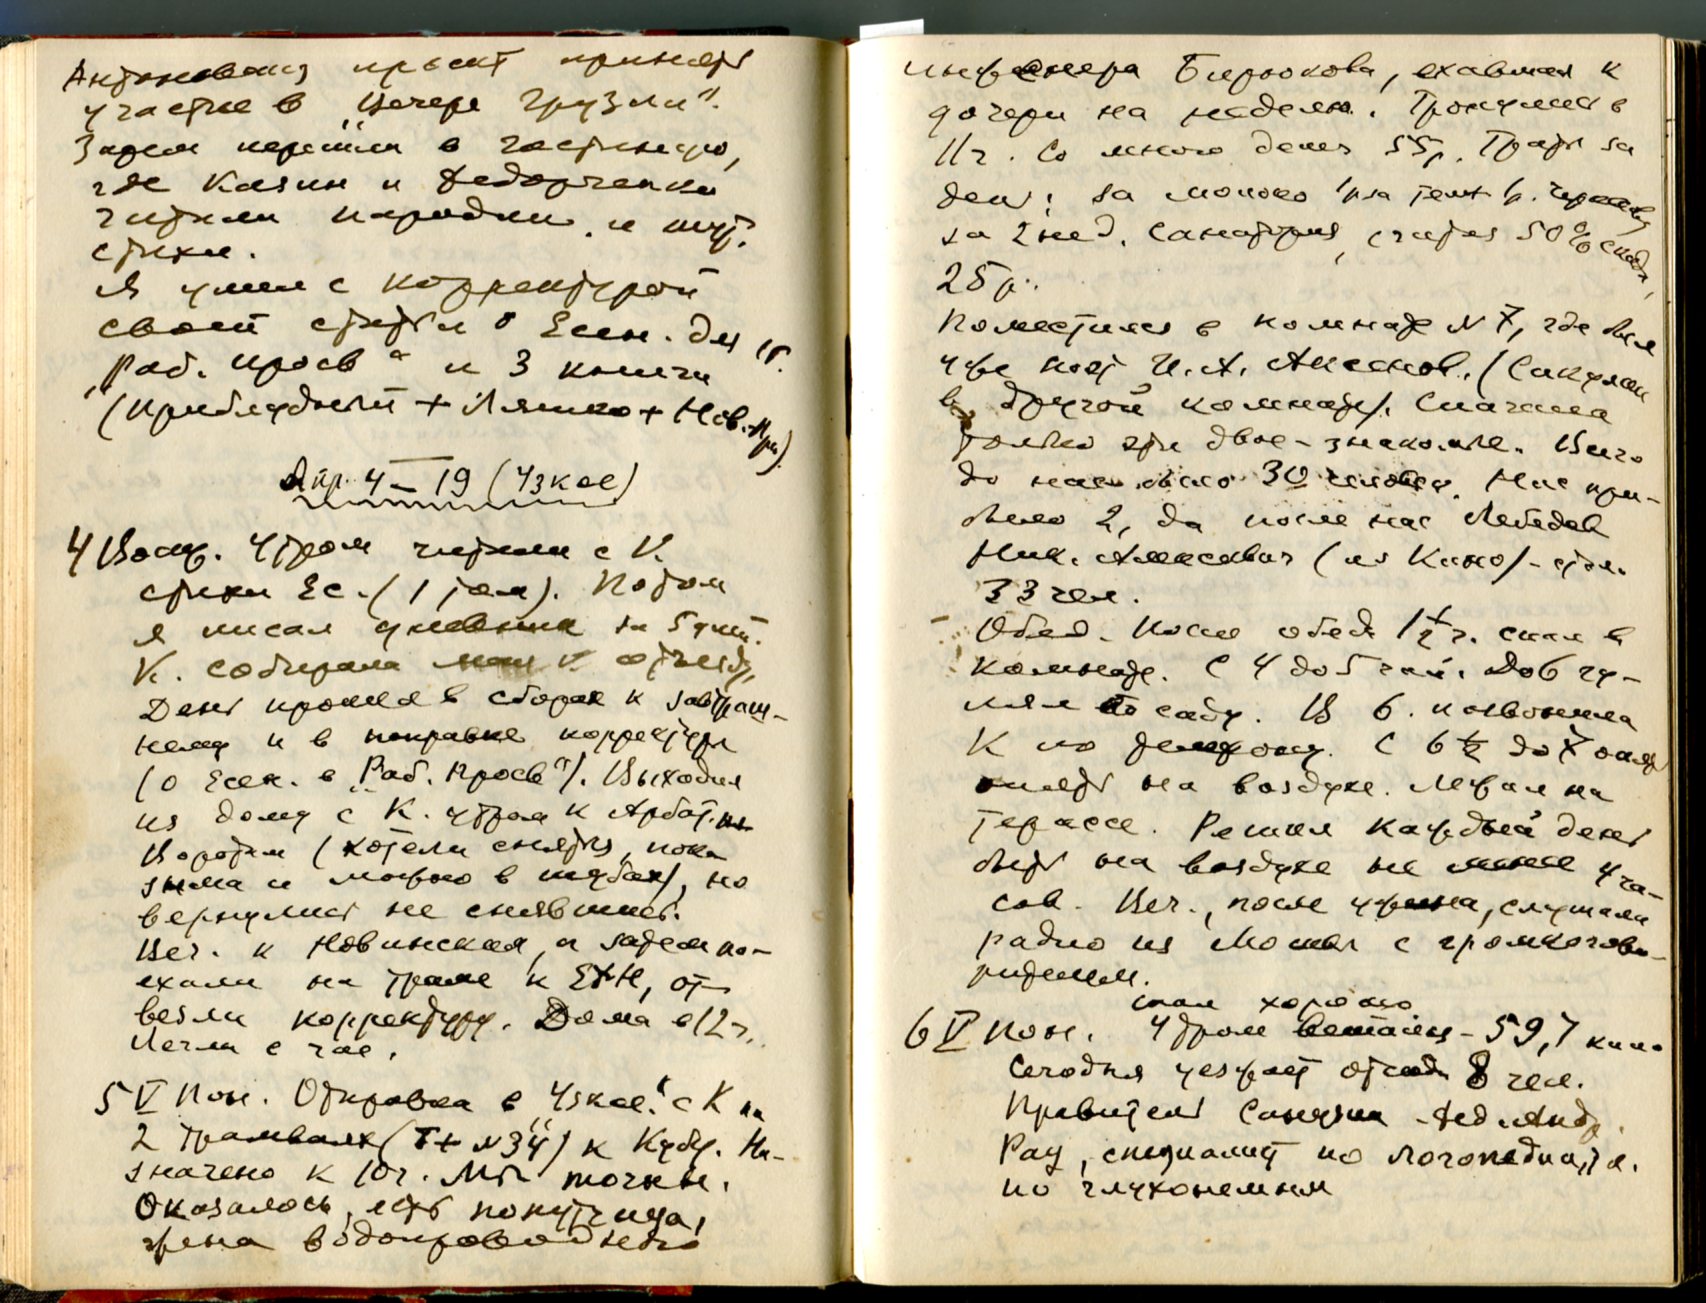 Антоновская просит принять
участие в „Вечере Грузии".
Затем перешли в гостиную,
где Казин и Федорченко
читали пародии и шут.
стихи.
Я ушел с корректурой
своей статьи о Есен. для
„Раб. Просв" и 3 книги
(Приблудный + Ляшко + Нов.
Апр. 4 – 19 (Узкое)
4 Воскр. Утром читали с К.
стихи Ес. (1 том). Потом
я писал дневник за 5 дней.
К. собирала к отъезду.
День прошел в сборах к завтраш-
нему и в поправке корректуры
(о Есен. в „Раб. Просв"). Выходил
из дому с К. утром к Арбат.
Воротам (хотели сняться, пока
зима и можно в шубах), но
вернулись не снявшись.
Веч. к Новинская, а затем по-
ехали на траме к ЕФН, от-
везли корректуру. Дома в 12 ч.
Легли в час.
5 V Пон. Отправка в „Узкое" с К на
2 трамваях (Б + № 34) к Кубу. На-
значено к 10 ч. Мы точны.
Оказалось, есть попутчица,
жена водопроводного
инженера Бирюкова, ехавшая к
дочери на неделю. Тронулись в
11 ч. Со мною денег 55 р. Трат за
день: за молоко 1 р за 1 р.
за 2 нед. санатория, считая 50% скидк.,
25 р.
Поместился в комнате № 7, где был
уже поэт И. А. Аксенов. (Сакулин
в другой комнате). Сначала
только эти двое – знакомые. Всего
до нас было 30 человек. Нас при-
было 2, да после нас Лебедев
Ник. Алексеевич (из Кино) – стало
33 чел.
Обед. После обеда 1½ ч. спал в
комнате. С 4 до 5 чай. До 6 гу-
лял по саду. В 6. позвонила
К по телефону. С 6½ до 7 опять
на воздухе. Лежал на
терассе. Решил каждый день
быть на воздухе не менее 4 ча-
сов. Веч., после ужина, слушали
радио из Москвы с громкогово-
рителем.
спал хорошо
6 V Пон. Утром – 59,7 кило
Сегодня уезжает отсюда 8 чел.
Правитель Санузии Фед. Андр.
Рау, специалист по логопедии, т.е.
по глухонемым